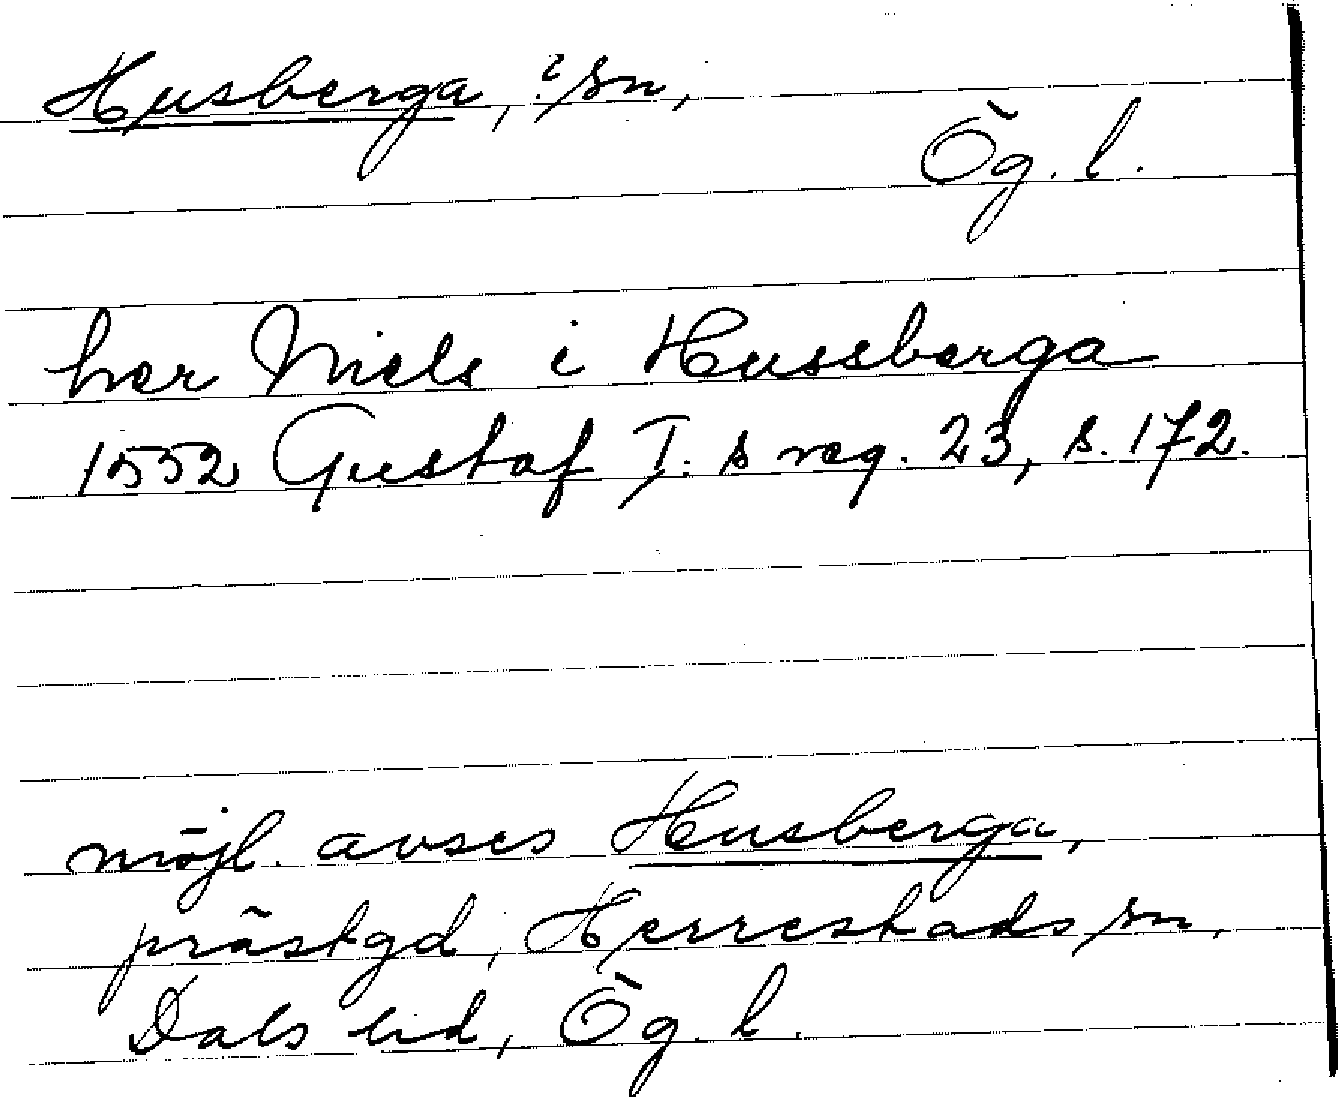 Husberga, ? sn,
Ög. l.
her Niels i Hussberga
1552 Gustaf I. s reg. 23, s. 172.
möjl. avses Husberga,
prästgd, Herrestads sn,
Dals hd, Ög. l.